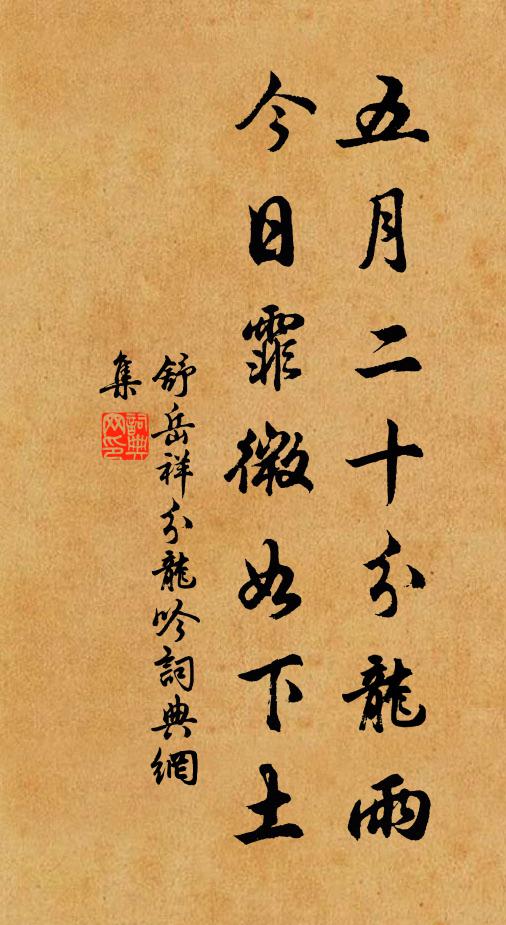 五月二十分龍雨
今日霏微如下土
舒岳祥分龍吟詞典網
集
詞典網印